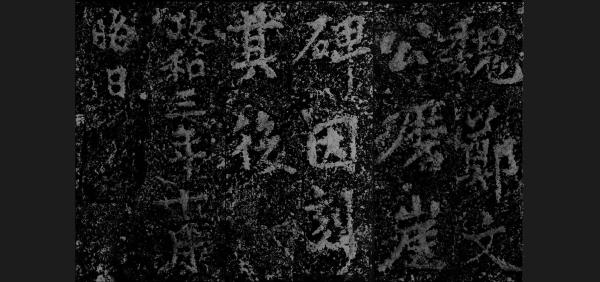 魏鄭文
公磨崖
碑因刻
其後
政和三年十月
晦日